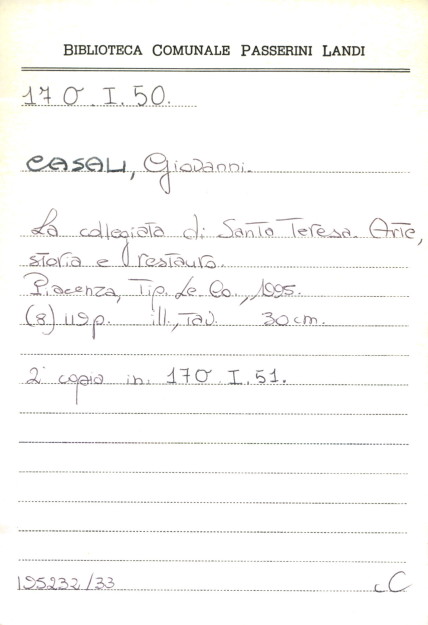 BIBLIOTECA COMUNALE PASSERINI LANDI
170.I.50.
CASALI, Giovanni.
La collegiata di Santa Teresa. Arte,
storia e restauro.
Piacenza, Tip. Le.Co., 1995.
(8) 119 p. ill., tav. 30 cm.
2ª copia in 170.I.51.
195232/33
cC